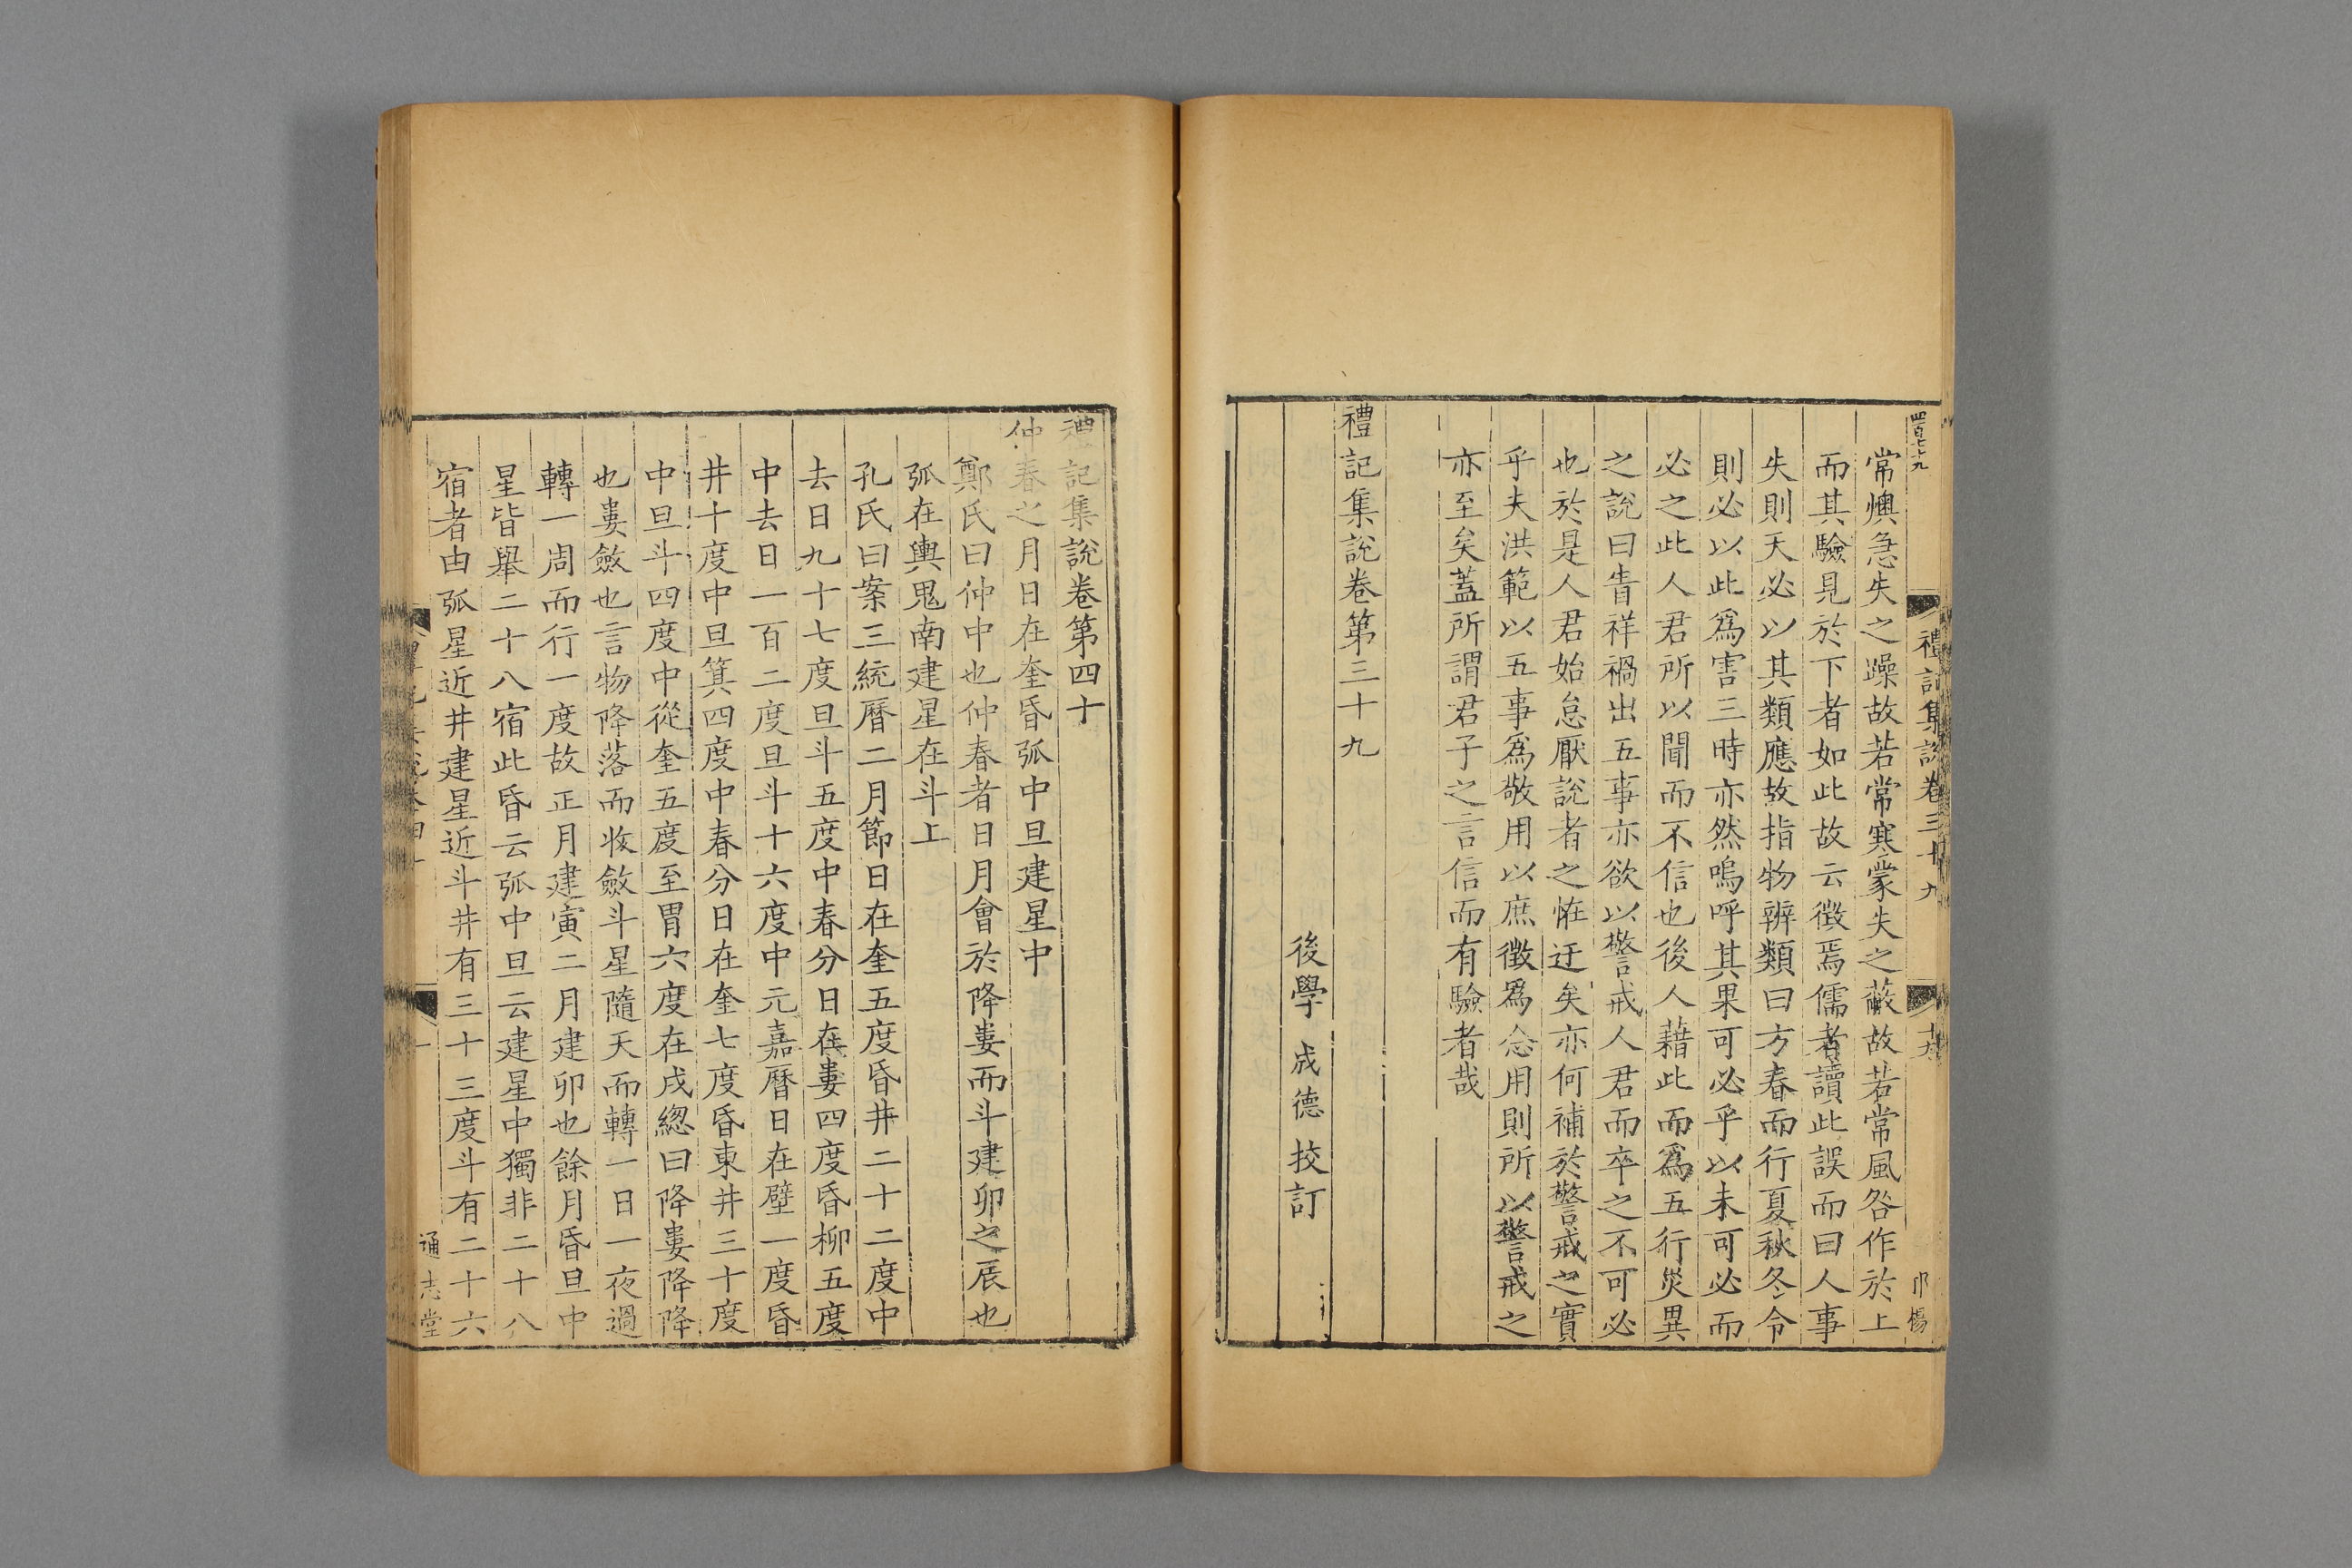 四百七十九
禮記集說卷三十九
常燠急失之躁故若常寒蒙失之蔽故若常風咎作於上
而其驗見於下者如此故云徴焉儒者讀此誤而曰人事
失則天必以其類應故指物辨類曰方春而行夏秋冬令
則必以此爲害三時亦然嗚呼其果可必乎以未可必而
必之此人君所以聞而不信也後人藉此而爲五行災異
之說曰眚祥禍出五事亦欲以警戒人君而卒之不可必
也於是人君始怠厭說者之恠迂矣亦何補於警戒之實
乎夫洪範以五事爲敬用以庶徴爲念用則所以警戒之
亦至矣蓋所謂君子之言信而有驗者哉
禮記集說卷第三十九
後學 成德 挍訂
禮記集說卷第四十
仲春之月日在奎昏弧中旦建星中
鄭氏曰仲中也仲春者日月會於降婁而斗建卯之辰也
弧在輿鬼南建星在斗上
孔氏曰案三統曆二月節日在奎五度昏井二十二度中
去日九十七度旦斗五度中春分日在婁四度昏柳五度
中去日一百二度旦斗十六度中元嘉曆日在壁一度昏
井十度中旦箕四度中春分日在奎七度昏東井三十度
中旦斗四度中從奎五度至胃六度在戌總曰降婁降降
也婁斂也言物降落而收斂斗星隨天而轉一日一夜過
轉一周而行一度故正月建寅二月建卯也餘月昏旦中
星皆舉二十八宿此昏云弧中旦云建星中獨非二十八
宿者由弧星近井建星近斗井有三十三度斗有二十六
通志堂